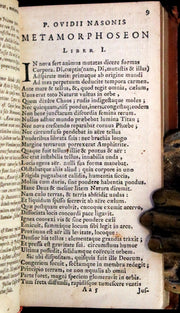 9
P. OVIDII NASONIS
METAMORPHOSEON
LIBER I.
IN nova fert animus mutatas dicere formas
Corpora. Di, cœptis (nam, Di, mutastis & illas)
Adspirate meis: primaque ab origine mundi
Ad mea perpetuum deducite tempora carmen.
Ante mare & tellus, &, quod tegit omnia, cælum,
Unus erat toto Naturæ vultus in orbe,
Quem dixere Chaos; rudis indigestaque moles;
nec quicquam, nisi pondus, iners, congestaq; eodem
Non bene junctarum discordia semina rerum.
Nullus adhuc mundo præbebat lumina Titan;
Nec nova crescendo reparabat cornua Phœbe;
Nec circumfuso pendebat in aëre tellus
Ponderibus librata suis: nec brachia longo
Margine terrarum porrexerat Amphitrite.
Quaque fuit tellus, illic & pontus & aër:
Sic erat instabilis tellus, innabilis unda,
Lucis egens aër: nulli sua forma manebat.
Obstabatque aliis aliud: quia corpore in uno
Frigida pugnabant calidis, humentia siccis,
Mollia cum duris, sine pondere habentia pondus.
Hanc Deus & melior litem Natura diremit.
Nam cœlo terras, & terris abscidit undas:
Et liquidum spisso secrevit ab aëre cœlum.
Quæ postquam evolvit, cæcoque exemit acervo,
Dissociata locis concordi pace ligavit.
Ignea convexi vis & sine pondere cœli
Emicuit, summaque locum sibi legit in arce.
Proximus est aër illi levitate, locoque:
Densior his tellus: elementaque grandia traxit;
Et pressa est gravitate sui. circumfluus humor
Ultima possedit, solidumque coërcuit orbem.
Sic ubi dispositam, quisquis fuit ille Deorum,
Congeriem secuit, sectamque in membra redegit;
Principio terram, ne non æqualis ab omni
Parte foret, magni speciem glomeravit in orbis.
Tum freta diffundi, rapidisque tumescere ventis
A a 5
Jus-